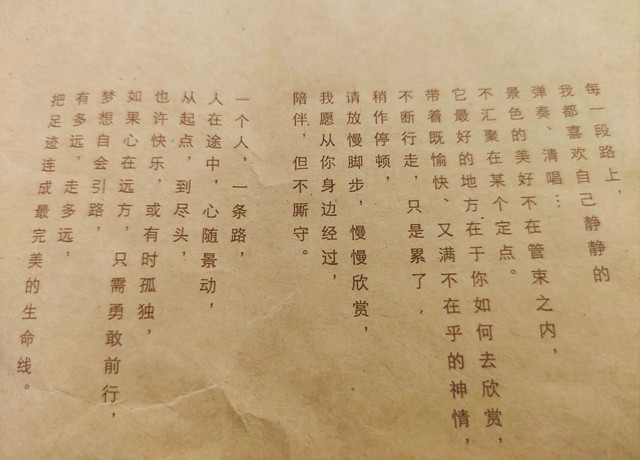 每一段路上，
我都喜欢自己静静的
弹奏、清唱…
景色的美好不在管束之内，
不汇聚在某个定点。
它最好的地方在于你如何去欣赏，
带着既愉快、又满不在乎的神情，
不断行走，只是累了，
稍作停顿，
请放慢脚步，慢慢欣赏，
我愿从你身边经过，
陪伴，但不厮守。
一个人，一条路，
人在途中，心随景动，
从起点，到尽头，
也许快乐，或有时孤独，
如果心在远方，只需勇敢前行，
梦想自会引路，
有多远，走多远，
把足迹连成最完美的生命线。